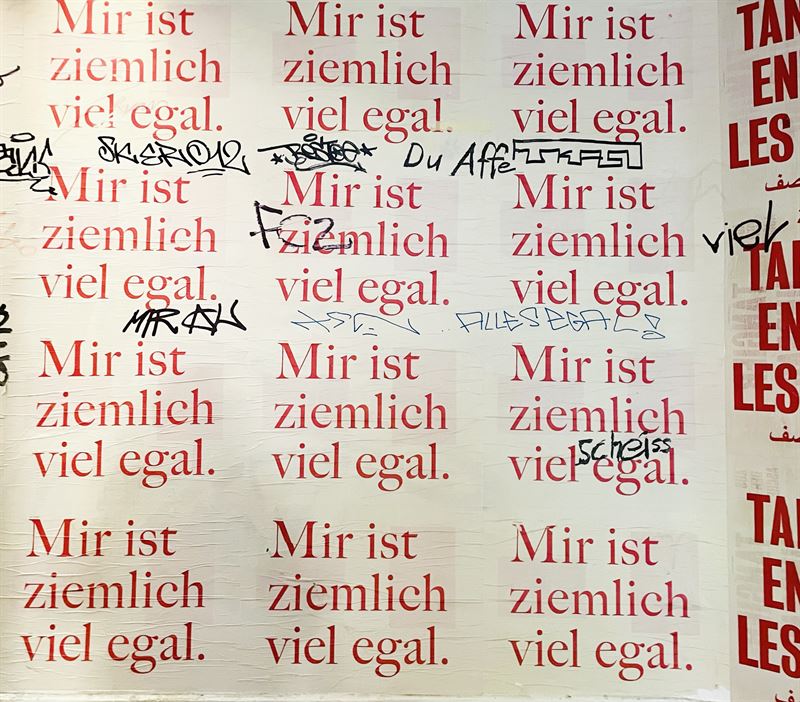 Mir ist
ziemlich
viel egal.
Mir ist
ziemlich
viel egal.
Mir ist
ziemlich
viel egal.
TAN
EN
LES
SKERO12
Du Affe
Mir ist
ziemlich
viel egal.
Mir ist
ziemlich
viel egal.
Mir ist
ziemlich
viel egal.
viel
TAN
EN
LES
MIR AU
ALLES EGAL!
Mir ist
ziemlich
viel egal.
Mir ist
ziemlich
viel egal.
Mir ist
ziemlich
viel egal.
scheiss
Mir ist
ziemlich
viel egal.
Mir ist
ziemlich
viel egal.
Mir ist
ziemlich
viel egal.
TAN
EN
LES